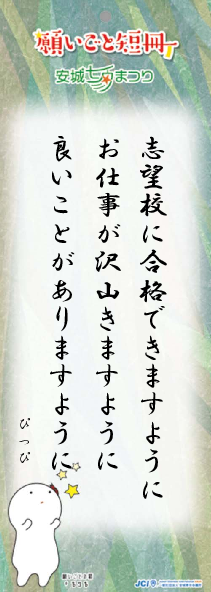 願いごと短冊
安城七夕まつり
志望校に合格できますように
お仕事が沢山きますように
良いことがありますように
ぴっぴ
JCI